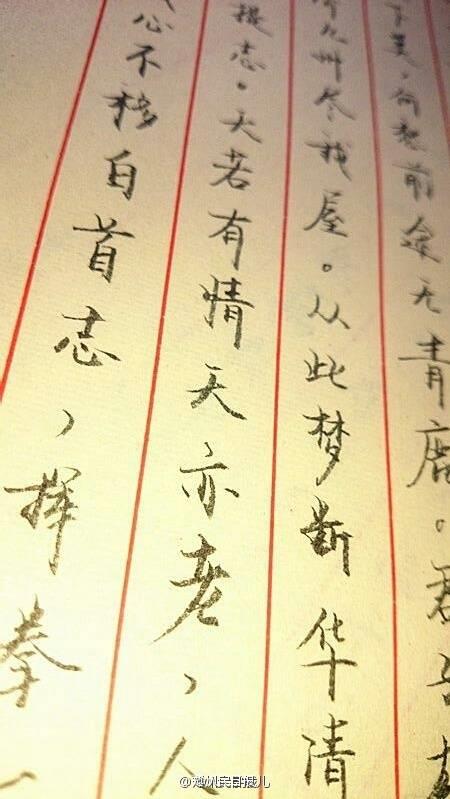 下美，何愁前途无青鹿。君
九州尽我屋。从此梦断华清
提志。天若有情天亦老，人
心不移自首志，挥拳一